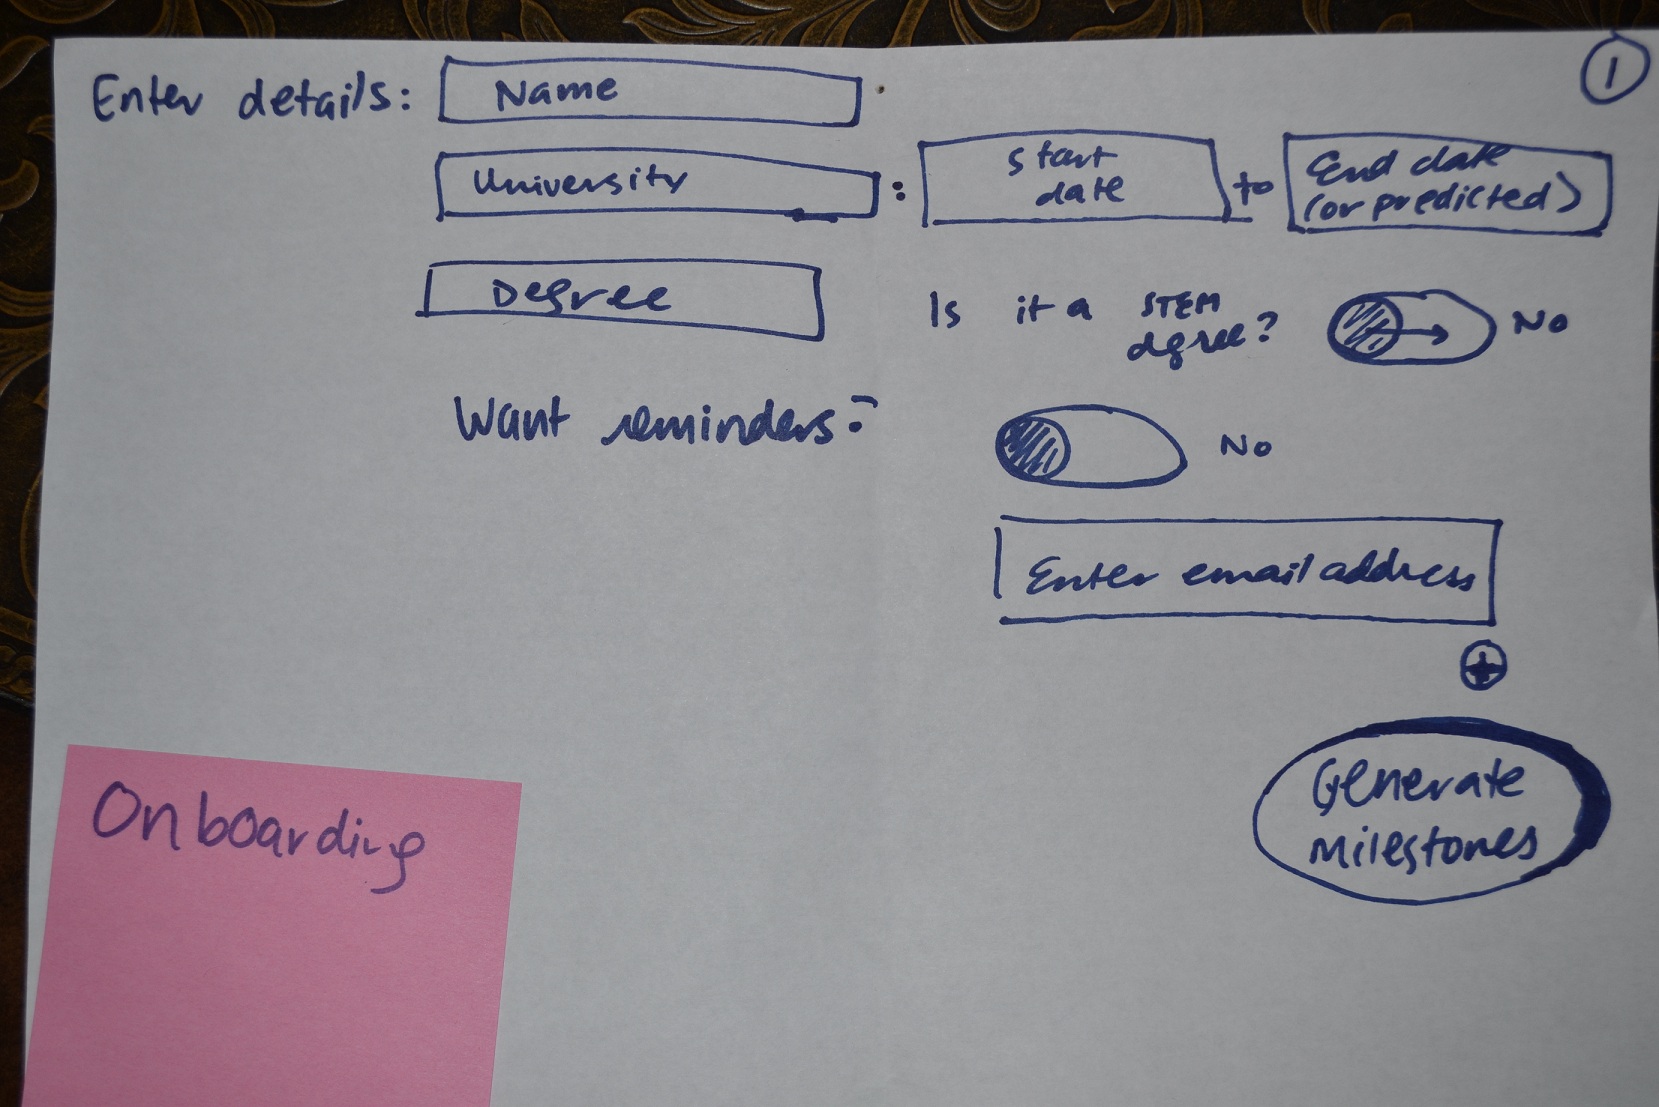 1
Enter details: Name
University : start date to End date (or predicted)
Degree Is it a STEM degree? No
Want reminders? No
Enter email address
+
Generate milestones
Onboarding